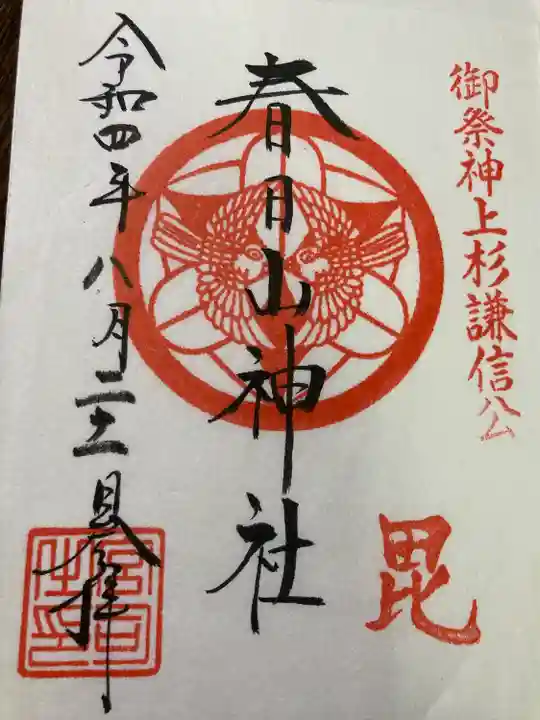 御祭神上杉謙信公
毘
春日山神社
令和四年八月二十二日参拝
宮司
之印